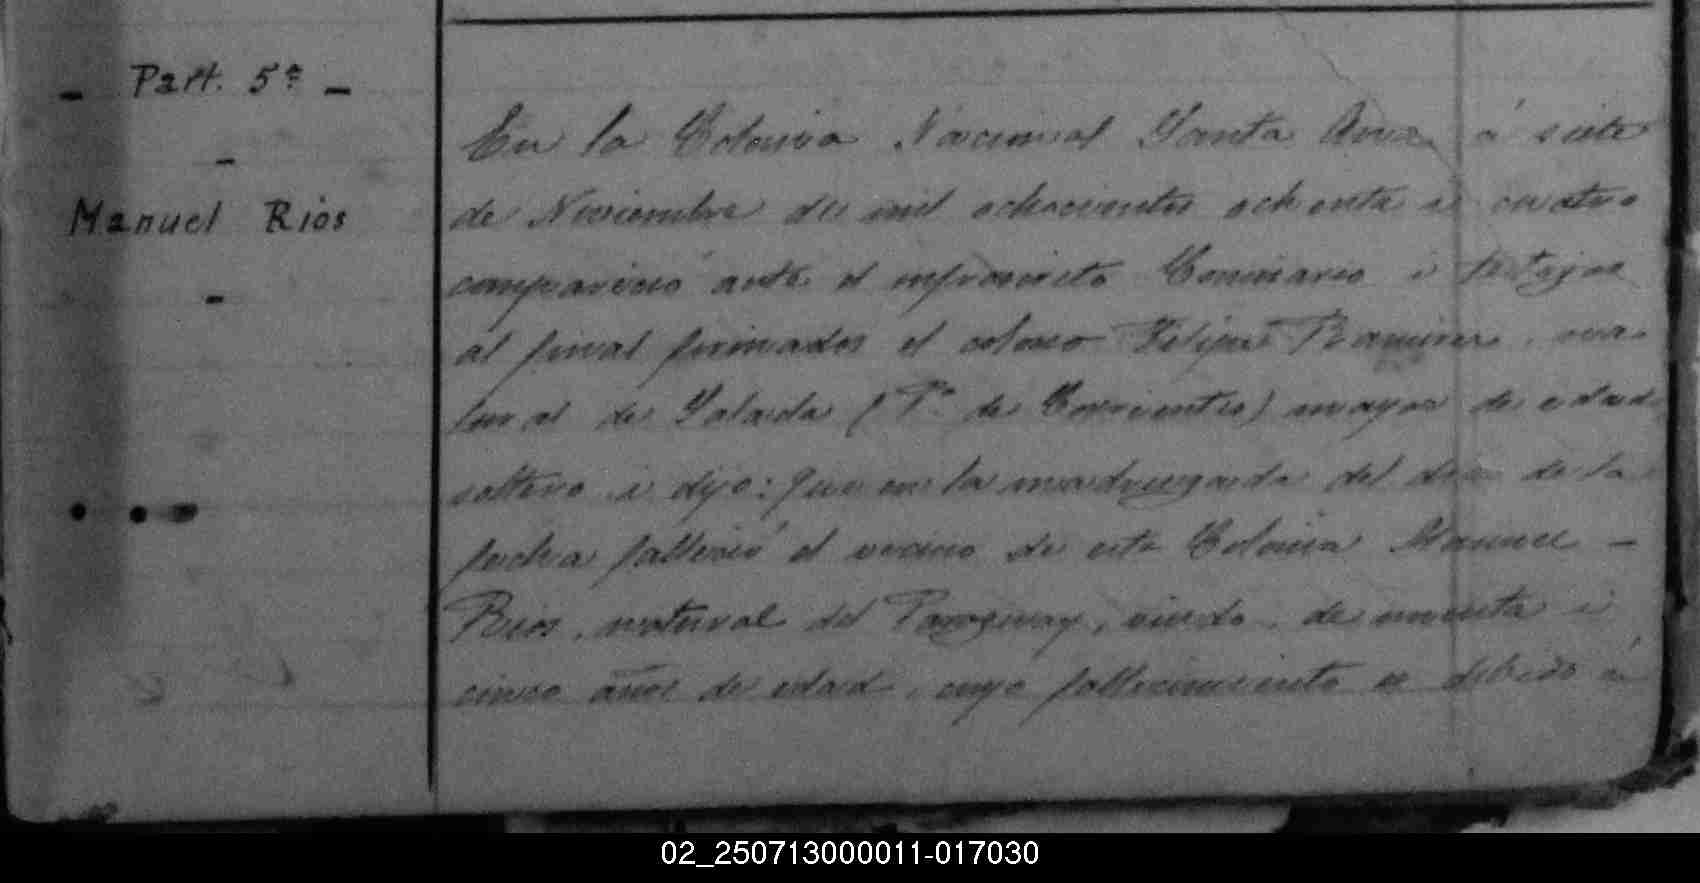 - Part. 5ª -
-
Manuel Rios
-
En la Colonia Nacional Santa Ana á siete
de Noviembre de mil ochocientos ochenta i cuatro
compareció ante el infrascrito Comisario i testigos
al final firmados el colono Felipe Ramirez, na-
tural de Salada (Pª de Corrientes) mayor de edad
soltero i dijo: Que en la madrugada del dia de la
fecha falleció el vecino de esta Colonia Manuel -
Rios, natural del Paraguay, viudo, de i
cinco años de edad, cuyo fallecimiento es debido á
02_250713000011-017030